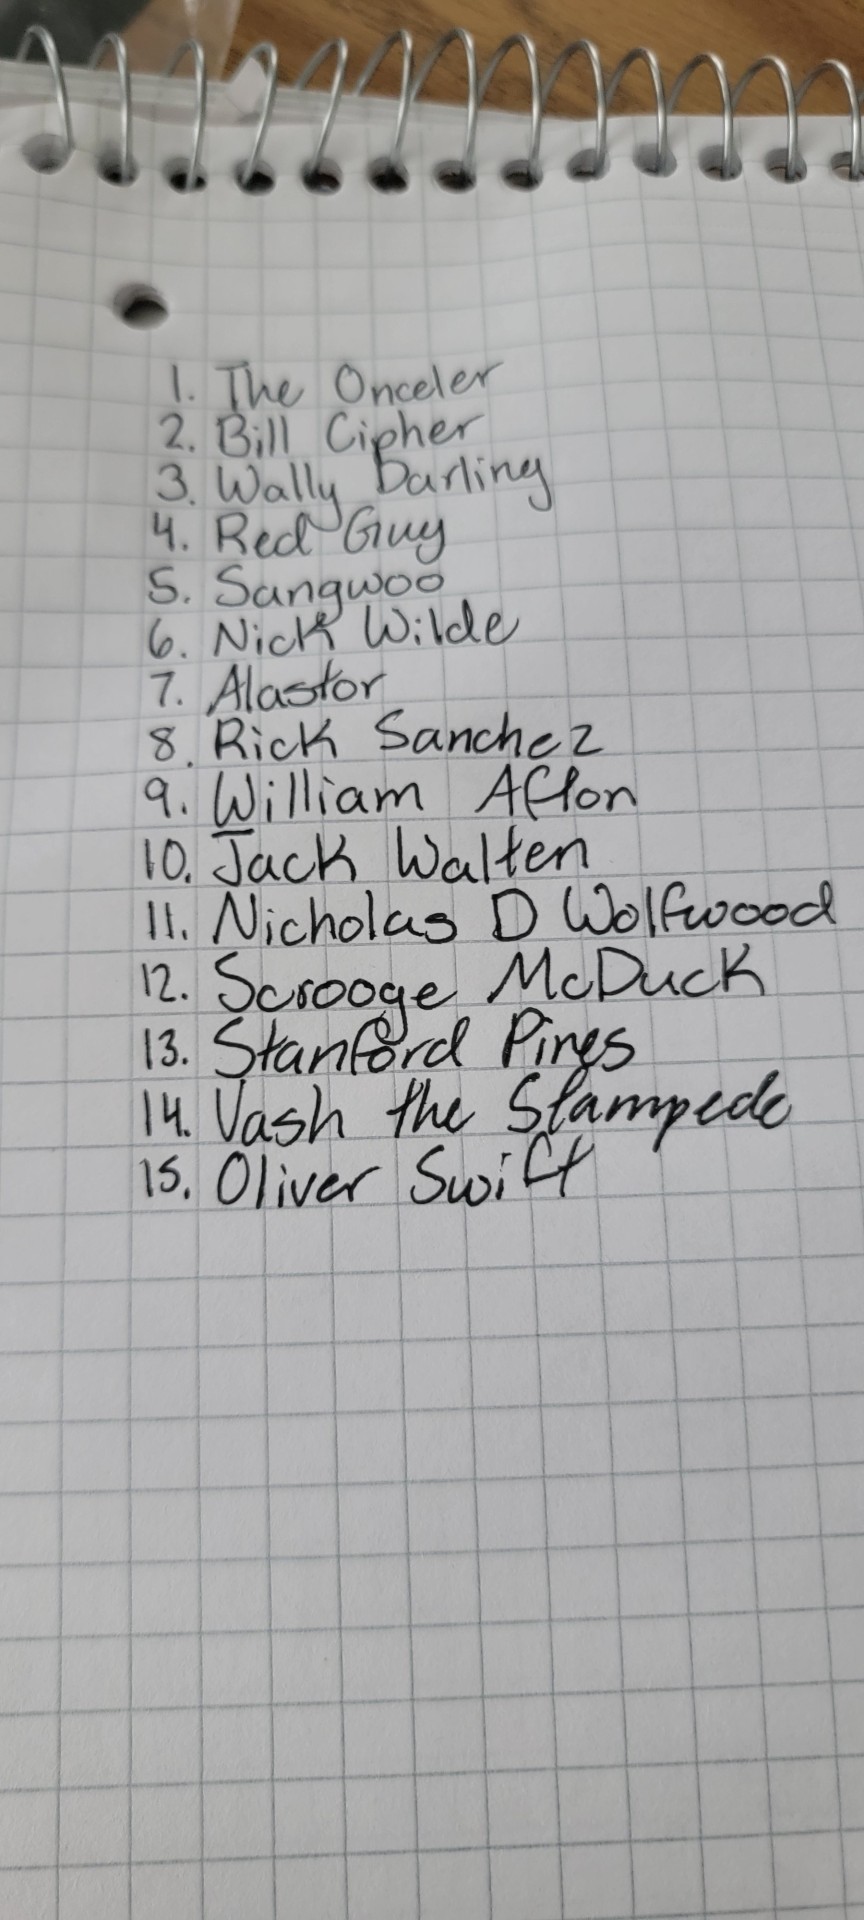 1. The Onceler
2. Bill Cipher
3. Wally Darling
4. Red Guy
5. Sangwoo
6. Nick Wilde
7. Alastor
8. Rick Sanchez
9. William Afton
10. Jack Walten
11. Nicholas D Wolfwood
12. Scrooge McDuck
13. Stanford Pines
14. Vash the Stampede
15. Oliver Swift